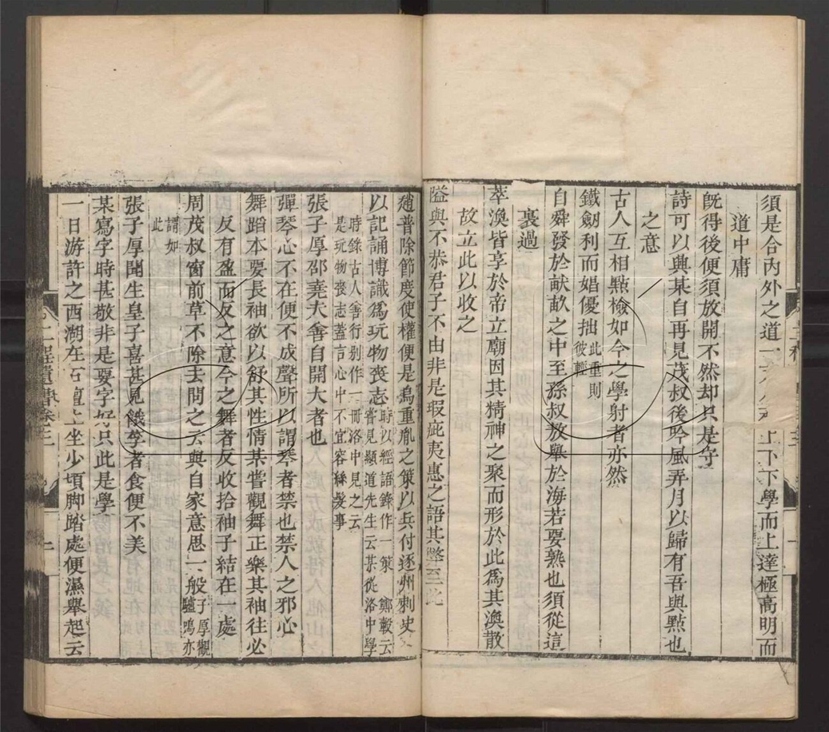 須是合內外之道一天人齊上下下學而上達極高明而
道中庸
旣得後便須放開不然却只是守
詩可以興某自再見茂叔後吟風弄月以歸有吾與點也
之意
古人互相點檢如今之學射者亦然
鐵劒利而娼優拙此重則彼輕
自舜發於畎畝之中至孫叔敖舉於海若要熟也須從這
裏過
萃渙皆享於帝立廟因其精神之聚而形於此爲其渙散
故立此以收之
隘與不恭君子不由非是瑕疵夷惠之語其弊至此
趙普除節度使權便是烏重胤之策以兵付逐州刺史
以記誦博識爲玩物喪志時以經語錄作一策 鄭轂云嘗見顯道先生云某從洛中學
時錄古人善行別作一冊洛中見之云是玩物喪志蓋言心中不宜容絲髮事
張子厚邵堯夫善自開大者也
彈琴心不在便不成聲所以謂琴者禁也禁人之邪心
舞蹈本要長袖欲以舒其性情某嘗觀舞正樂其袖往必
反有盈而反之意今之舞者反收拾袖子結在一處
周茂叔窗前草不除去問之云與自家意思一般子厚觀驢鳴亦
謂如此
張子厚聞生皇子喜甚見餓莩者食便不美
某寫字時甚敬非是要字好只此是學
二程遺書卷三
一日游許之西湖在石壇上坐少頃脚踏處便濕舉起云